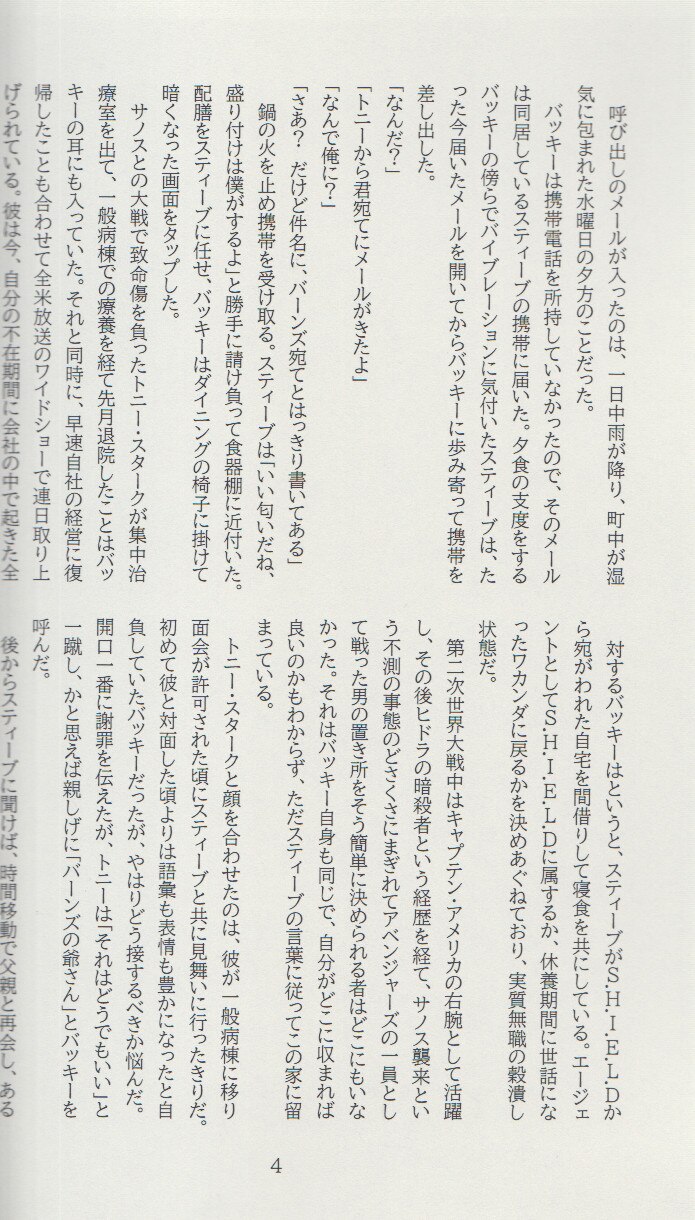 呼び出しのメールが入ったのは、一日中雨が降り、町中が湿
気に包まれた水曜日の夕方のことだった。
　バッキーは携帯電話を所持していなかったので、そのメール
は同居しているスティーブの携帯に届いた。夕食の支度をする
バッキーの傍らでバイブレーションに気付いたスティーブは、た
った今届いたメールを開いてからバッキーに歩み寄って携帯を
差し出した。
「なんだ?」
「トニーから君宛てにメールがきたよ」
「なんで俺に?」
「さあ?　だけど件名に、バーンズ宛てとはっきり書いてある」
　鍋の火を止め携帯を受け取る。スティーブは「いい匂いだね、
盛り付けは僕がするよ」と勝手に請け負って食器棚に近付いた。
配膳をスティーブに任せ、バッキーはダイニングの椅子に掛けて
暗くなった画面をタップした。
　サノスとの大戦で致命傷を負ったトニー・スタークが集中治
療室を出て、一般病棟での療養を経て先月退院したことはバッ
キーの耳にも入っていた。それと同時に、早速自社の経営に復
帰したことも合わせて全米放送のワイドショーで連日取り上
げられている。彼は今、自分の不在期間に会社の中で起きた全
　対するバッキーはというと、スティーブがS.H.I.E.L.Dか
ら宛がわれた自宅を間借りして寝食を共にしている。エージェ
ントとしてS.H.I.E.L.Dに属するか、休養期間に世話にな
ったワカンダに戻るかを決めあぐねており、実質無職の穀潰し
状態だ。
　第二次世界大戦中はキャプテン・アメリカの右腕として活躍
し、その後ヒドラの暗殺者という経歴を経て、サノス襲来とい
う不測の事態のどさくさにまぎれてアベンジャーズの一員とし
て戦った男の置き所をそう簡単に決められる者はどこにもいな
かった。それはバッキー自身も同じで、自分がどこに収まれば
良いのかもわからず、ただスティーブの言葉に従ってこの家に留
まっている。
　トニー・スタークと顔を合わせたのは、彼が一般病棟に移り
面会が許可された頃にスティーブと共に見舞いに行ったきりだ。
初めて彼と対面した頃よりは語彙も表情も豊かになったと自
負していたバッキーだったが、やはりどう接するべきか悩んだ。
開口一番に謝罪を伝えたが、トニーは「それはどうでもいい」と
一蹴し、かと思えば親しげに「バーンズの爺さん」とバッキーを
呼んだ。
　後からスティーブに聞けば、時間移動で父親と再会し、ある
4